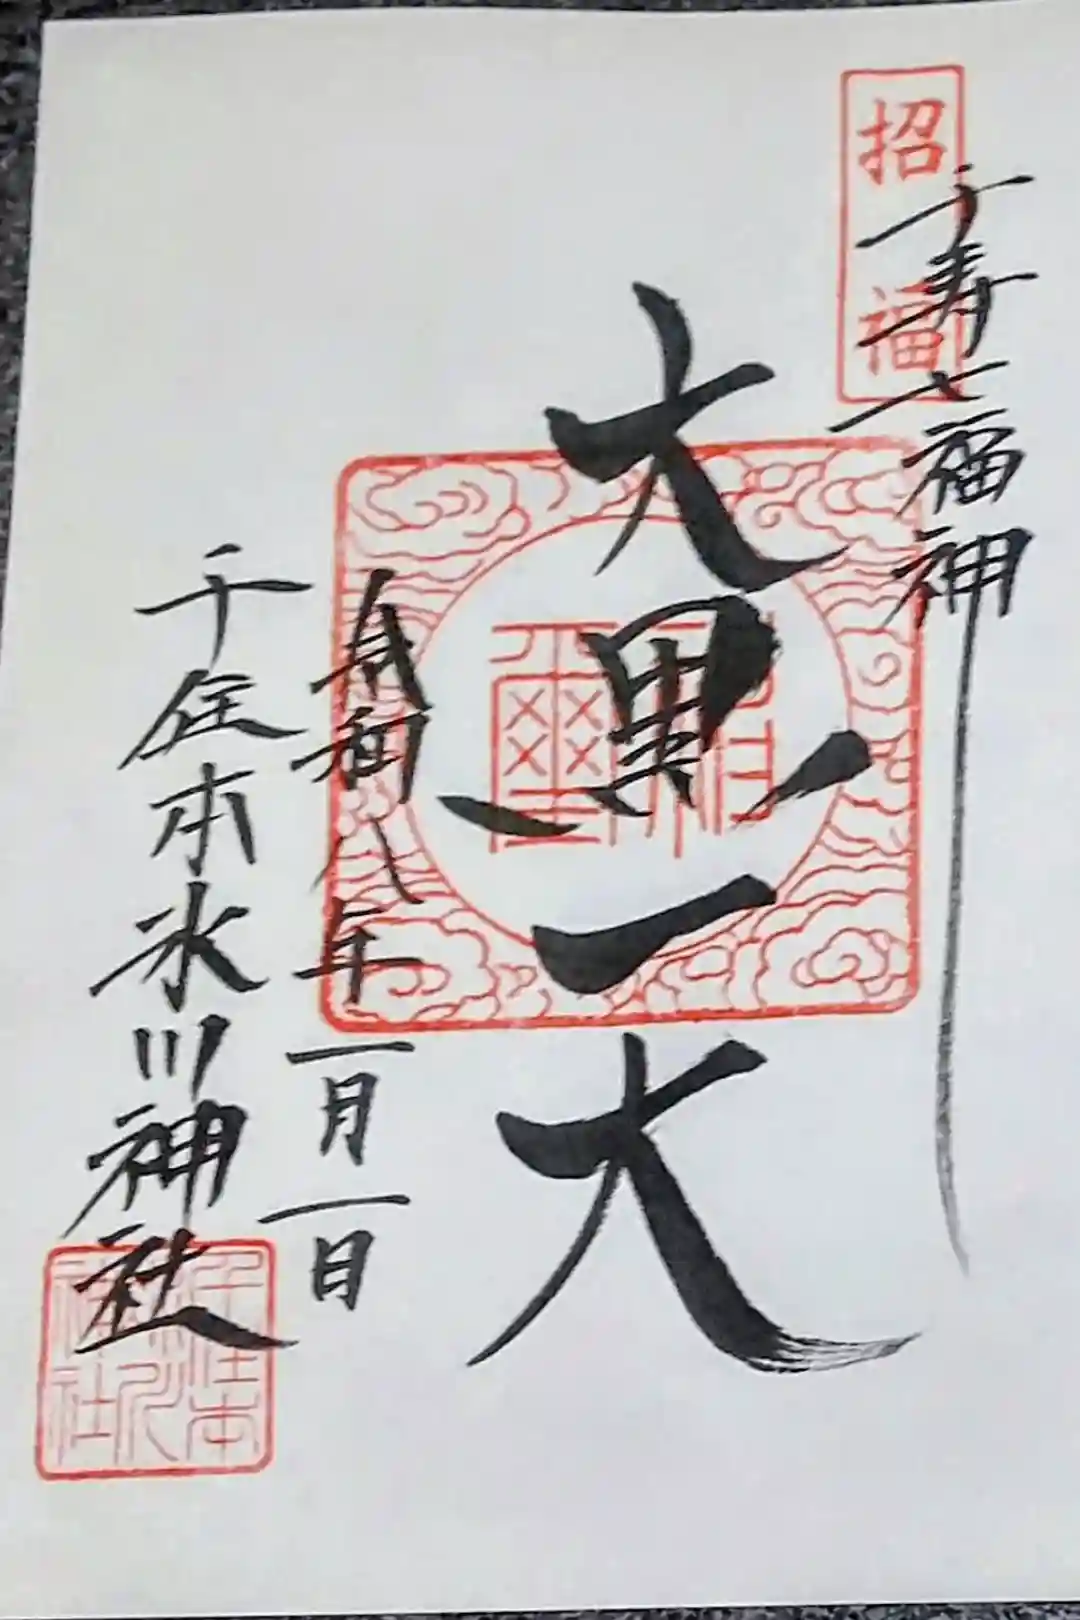 招福
千寿七福神
大黒天
令和八年一月一日
千住本氷川神社
千住本
氷川
神社